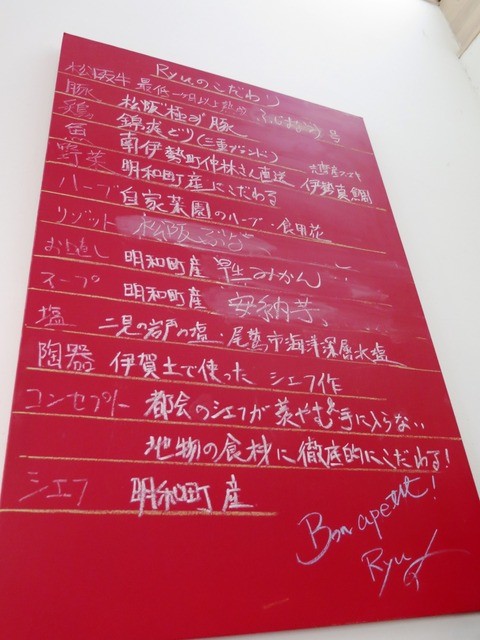 Ryuのこだわり
松阪牛 最低一ヶ月以上熟成 号
豚 松阪極み豚
鶏 錦爽どり(三重ブランド)
魚 南伊勢町仲林さん直送 伊勢真鯛
野菜 明和町産にこだわる
ハーブ 自家菜園のハーブ・食用花
リゾット 松阪
お口直し 明和町産 早生みかん
スープ 明和町産 安納芋
塩 二見の岩戸の塩・尾鷲市海洋深層水塩
陶器 伊賀土で使った シェフ作
コンセプト 都会のシェフが羨やむ 手に入らない
地物の食材に徹底的にこだわる!
シェフ 明和町産
Bon apetit!
Ryu